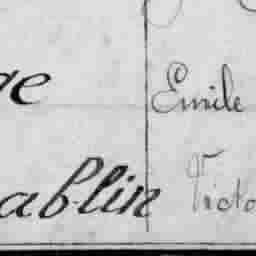 ge Emile
ablin Victo